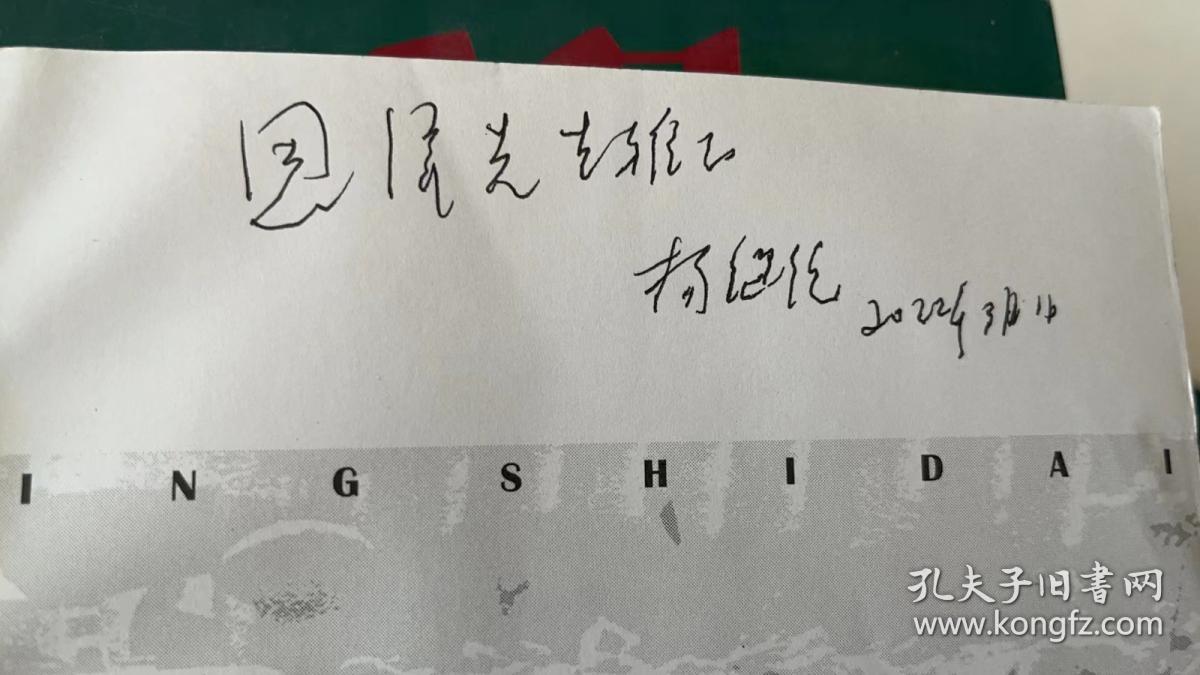 恩泽先生雅正
杨继绳
2022年3月
I N G S H I D A I
孔夫子旧书网
www.kongfz.com